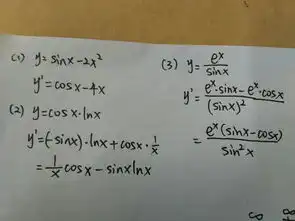 (1) y=sinx-2x²
y'=cosx-4x
(2) y=cosx·lnx
y'=(-sinx)·lnx+cosx·1/x
=1/x cosx-sinxlnx
(3) y=e^x/sinx
y'=(e^x·sinx-e^x·cosx)/(sinx)²
=e^x(sinx-cosx)/sin²x